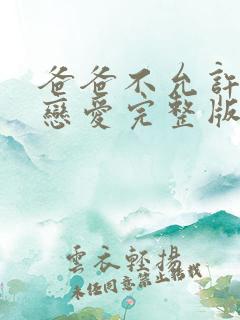 爸爸不允許
戀愛完整版
雲衣輕揚
未經同意禁止轉載